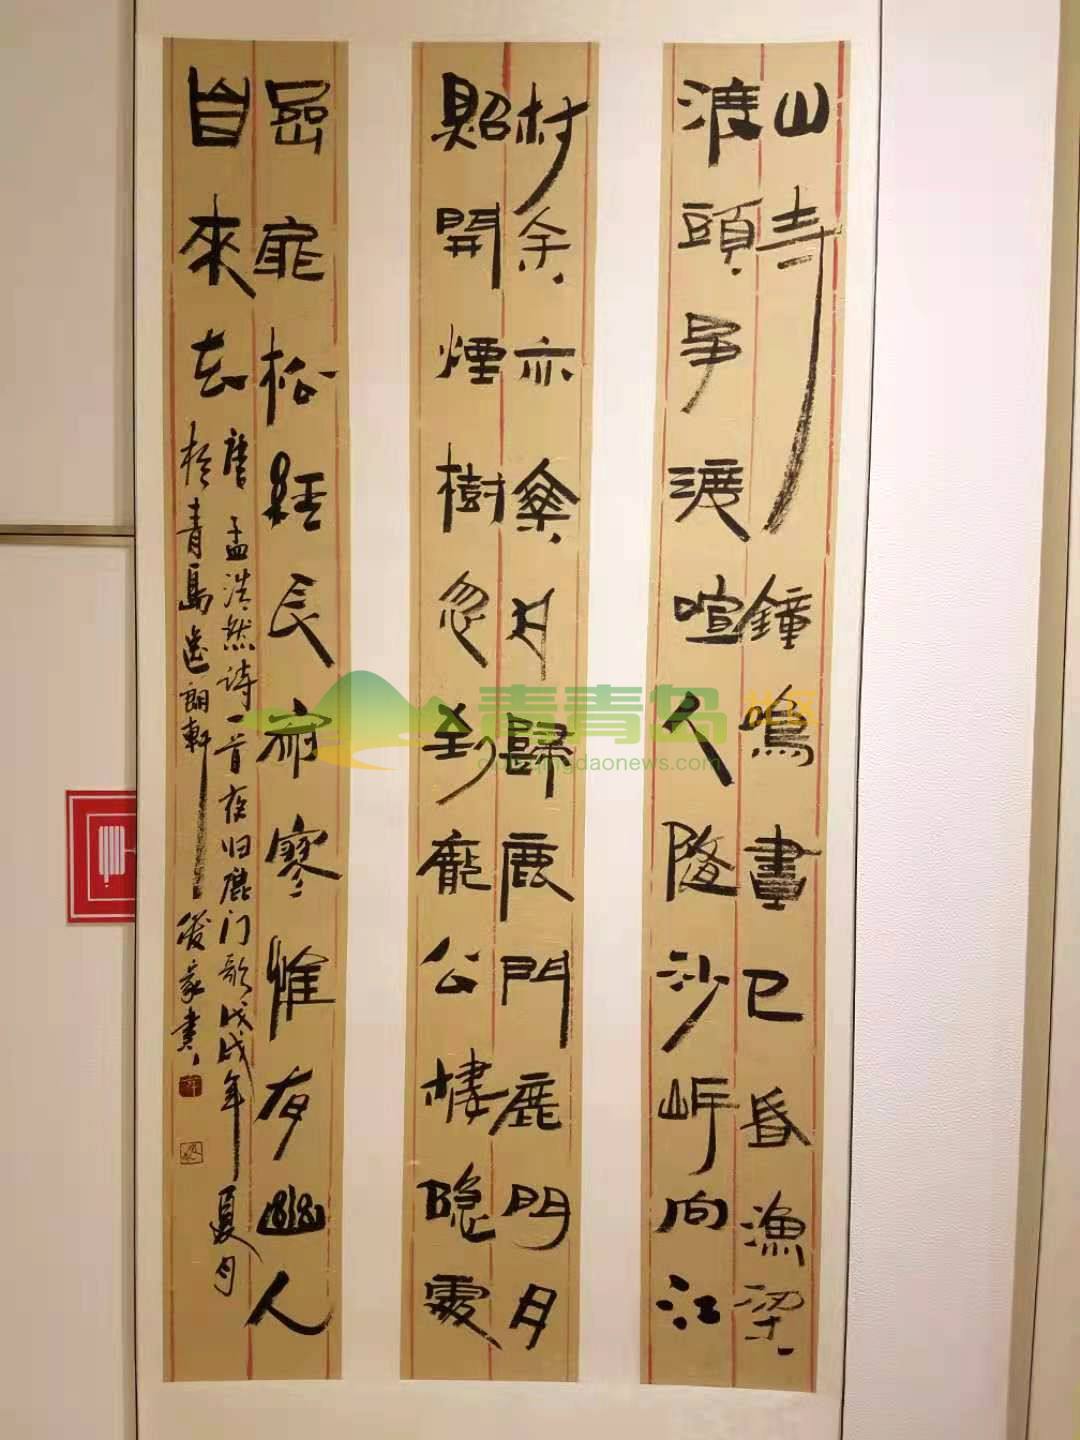 山寺鐘鳴晝已昏漁梁
渡頭爭渡喧人隨沙岸向江
村余亦乘舟歸鹿門鹿門月
照開煙樹忽到龐公棲隱處
巖扉松徑長寂寥惟有幽人
自來去
唐孟浩然诗一首夜归鹿门歌戊戌年夏月
於青島朗軒書
青青岛社区
club.qingdaonews.com